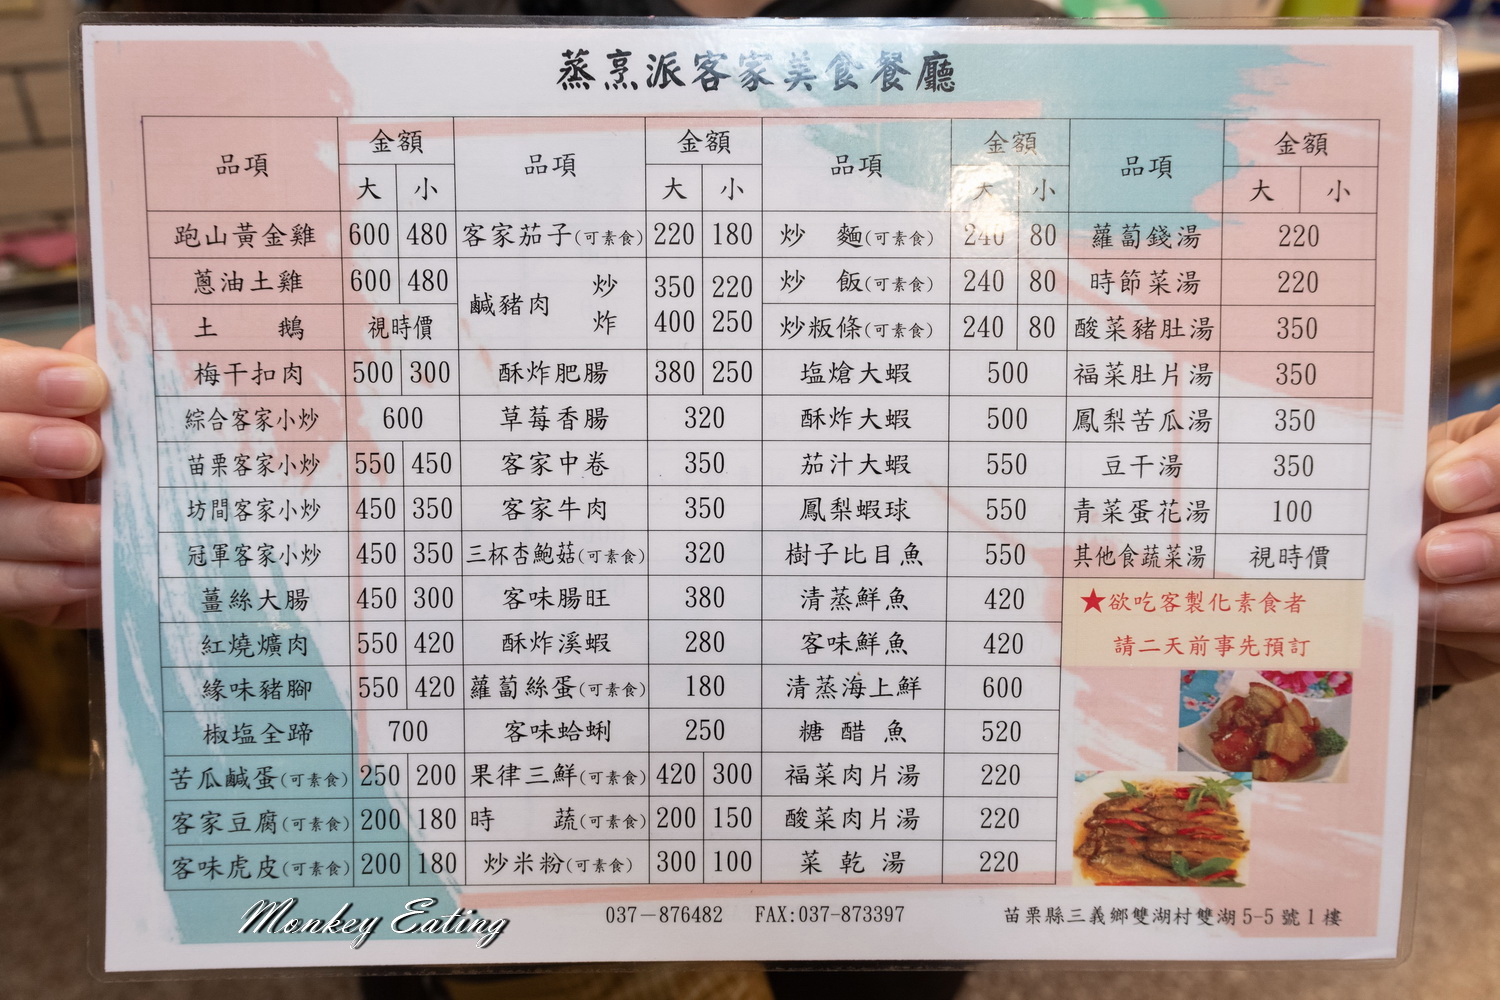 蒸烹派客家美食餐廳
品項 金額 品項 金額 品項 金額 品項 金額
大 小 大 小 大 小 大 小
跑山黃金雞 600 480 客家茄子(可素食) 220 180 炒 麵(可素食) 240 80 蘿蔔錢湯 220
蔥油土雞 600 480 鹹豬肉 炒 350 220 炒 飯(可素食) 240 80 時節菜湯 220
土 鵝 視時價 炸 400 250 炒粄條(可素食) 240 80 酸菜豬肚湯 350
梅干扣肉 500 300 酥炸肥腸 380 250 塩焓大蝦 500 福菜肚片湯 350
綜合客家小炒 600 草莓香腸 320 酥炸大蝦 500 鳳梨苦瓜湯 350
苗栗客家小炒 550 450 客家中卷 350 茄汁大蝦 550 豆干湯 350
坊間客家小炒 450 350 客家牛肉 350 鳳梨蝦球 550 青菜蛋花湯 100
冠軍客家小炒 450 350 三杯杏鮑菇(可素食) 320 樹子比目魚 550 其他食蔬菜湯 視時價
薑絲大腸 450 300 客味腸旺 380 清蒸鮮魚 420 ★欲吃客製化素食者
紅燒爌肉 550 420 酥炸溪蝦 280 客味鮮魚 420 請二天前事先預訂
緣味豬腳 550 420 蘿蔔絲蛋(可素食) 180 清蒸海上鮮 600
椒塩全蹄 700 客味蛤蜊 250 糖醋魚 520
苦瓜鹹蛋(可素食) 250 200 果律三鮮(可素食) 420 300 福菜肉片湯 220
客家豆腐(可素食) 200 180 時 蔬(可素食) 200 150 酸菜肉片湯 220
客味虎皮(可素食) 200 180 炒米粉(可素食) 300 100 菜乾湯 220
Monkey Eating 037-876482 FAX:037-873397 苗栗縣三義鄉雙湖村雙湖5-5號1樓